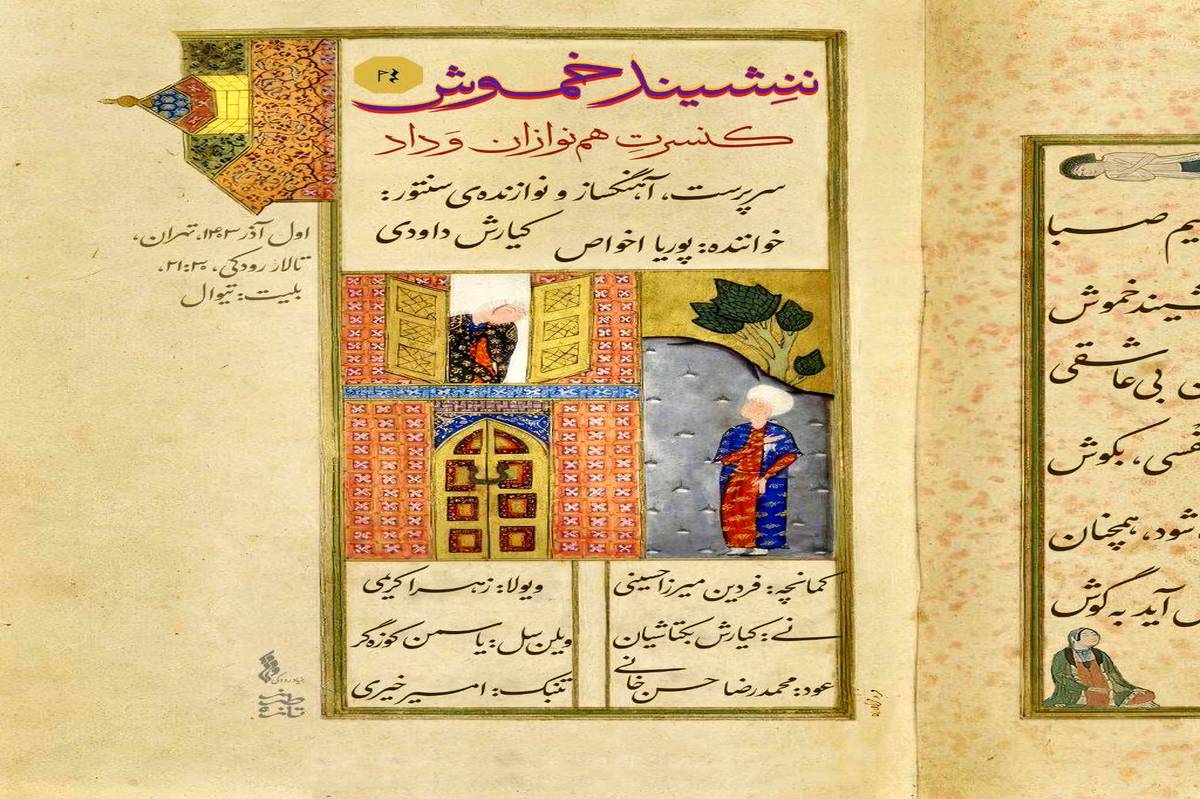 ننِشیند خموش
کنسرتِ هم‌نوازان وَداد
سرپرست، آهنگساز و نوازنده‌ی سنتور:
کیارش داودی
خواننده: پوریا اخواص
اول آذر ۱۴۰۳، تهران،
تالار رودکی، ۲۱:۳۰،
بلیت: تیوال
کمانچه: فردین میرزاحسینی
ویولا: زهرا کریمی
نے: کیارش بکتاشیان
ویلن سل: یاسمن کوزه‌گر
عود: محمدرضا حسن خانے
تنبک: امیر خیری
بنیاد رودکی
یم صبا
شیند خموش
بی عاشقی
بکوش
شود، همچنان
آید به گوش